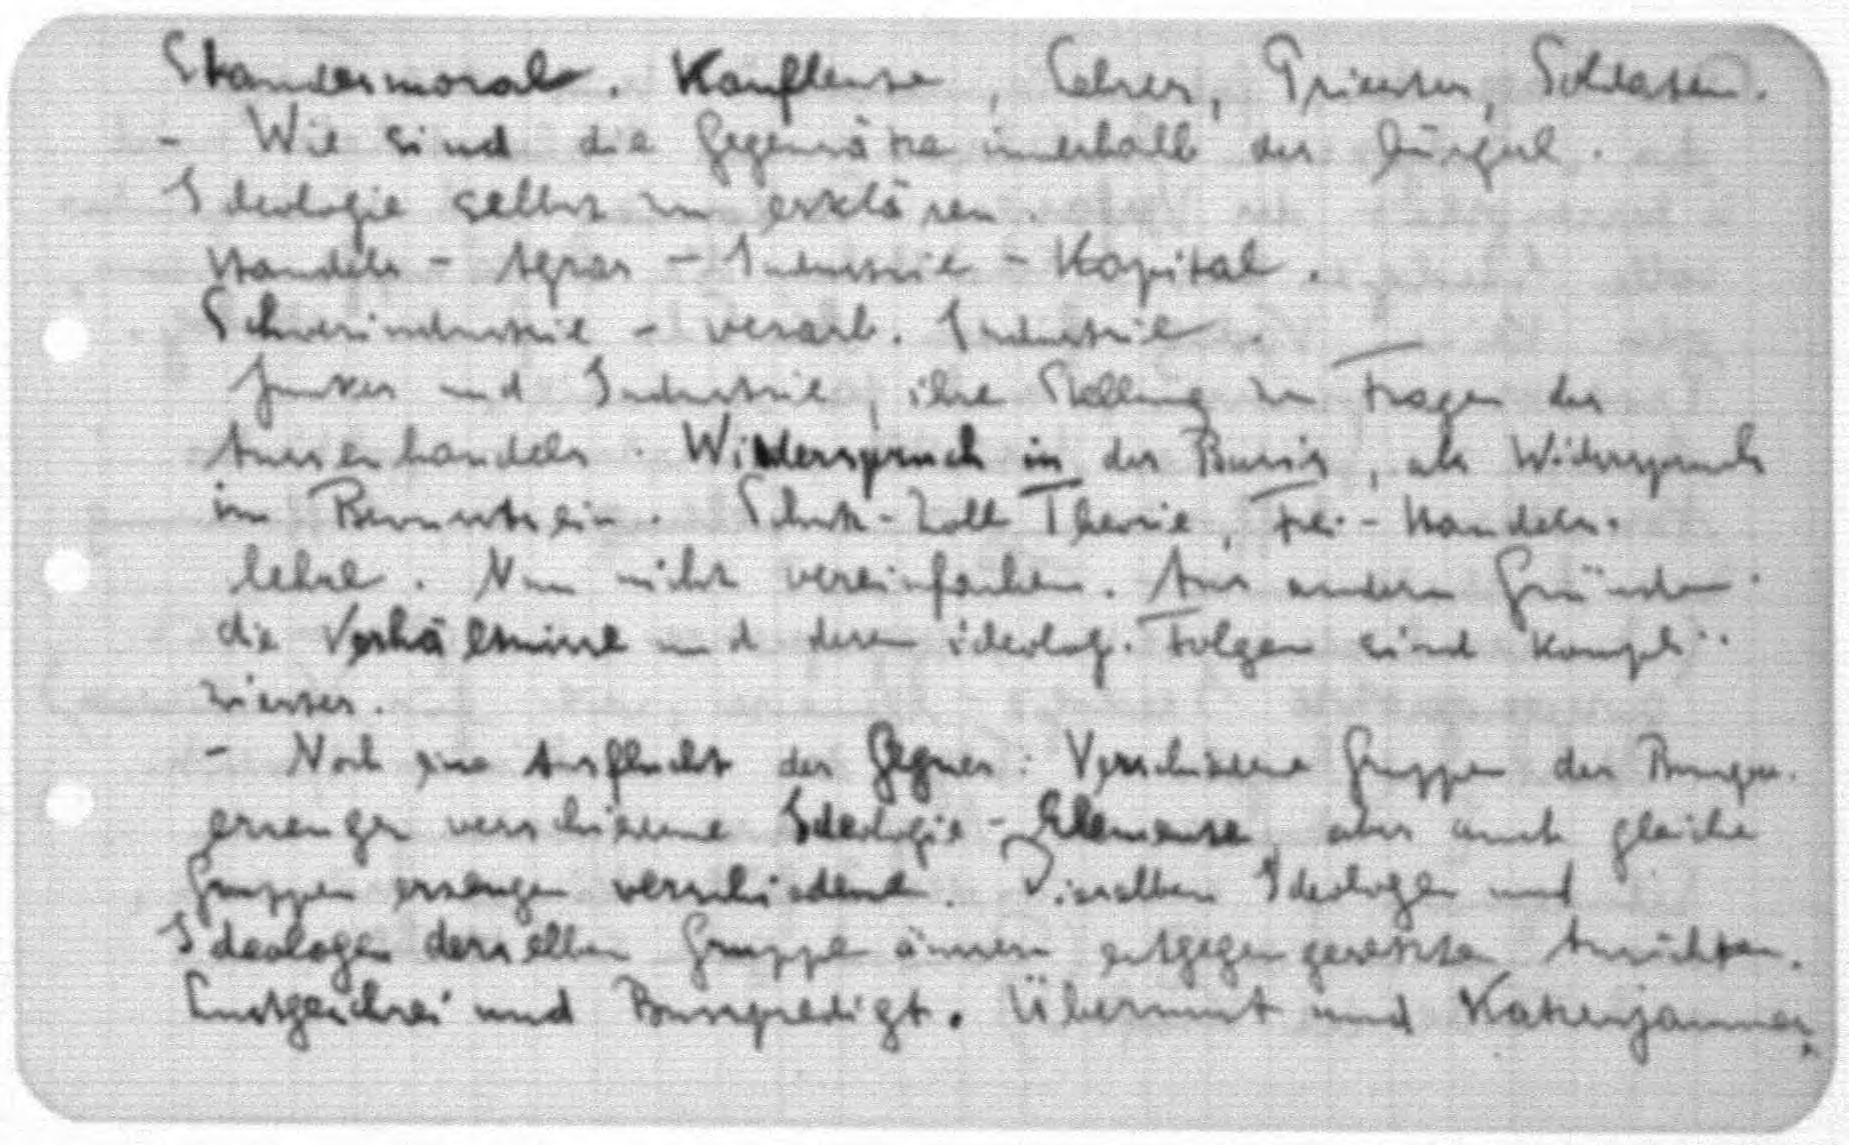 Standesmoral. Kaufleute, Lehrer, Priester, Soldaten.
- Wie sind die Gegensätze innerhalb der bürgerl.
Ideologie selbst zu erklären.
Handels - Agrar - Industrie - Kapital.
Schwerindustrie - verarb. Industrie.
Junker und Industrie, ihre Stellung zu Fragen des
Aussenhandels. Widerspruch in der Basis, als Widerspruch
im Bewusstsein. Schutz-Zoll Theorie, Frei-Handels-
lehre. Nun nicht vereinfachen. Aus andern Gründen
die Verhältnisse und deren ideolog. Folgen sind kompli-
zierter.
- Noch eine Ausflucht der Gegner: Verschiedene Gruppen der Bourgeo.
erzeugen verschiedene Ideologie-Elemente, aber auch gleiche
Gruppen erzeugen verschiedene. Dieselben Ideologen und
Ideologen derselben Gruppe äussern entgegengesetzte Ansichten.
Lustgeschrei und Busspredigt. Übermut und Katzenjammer.